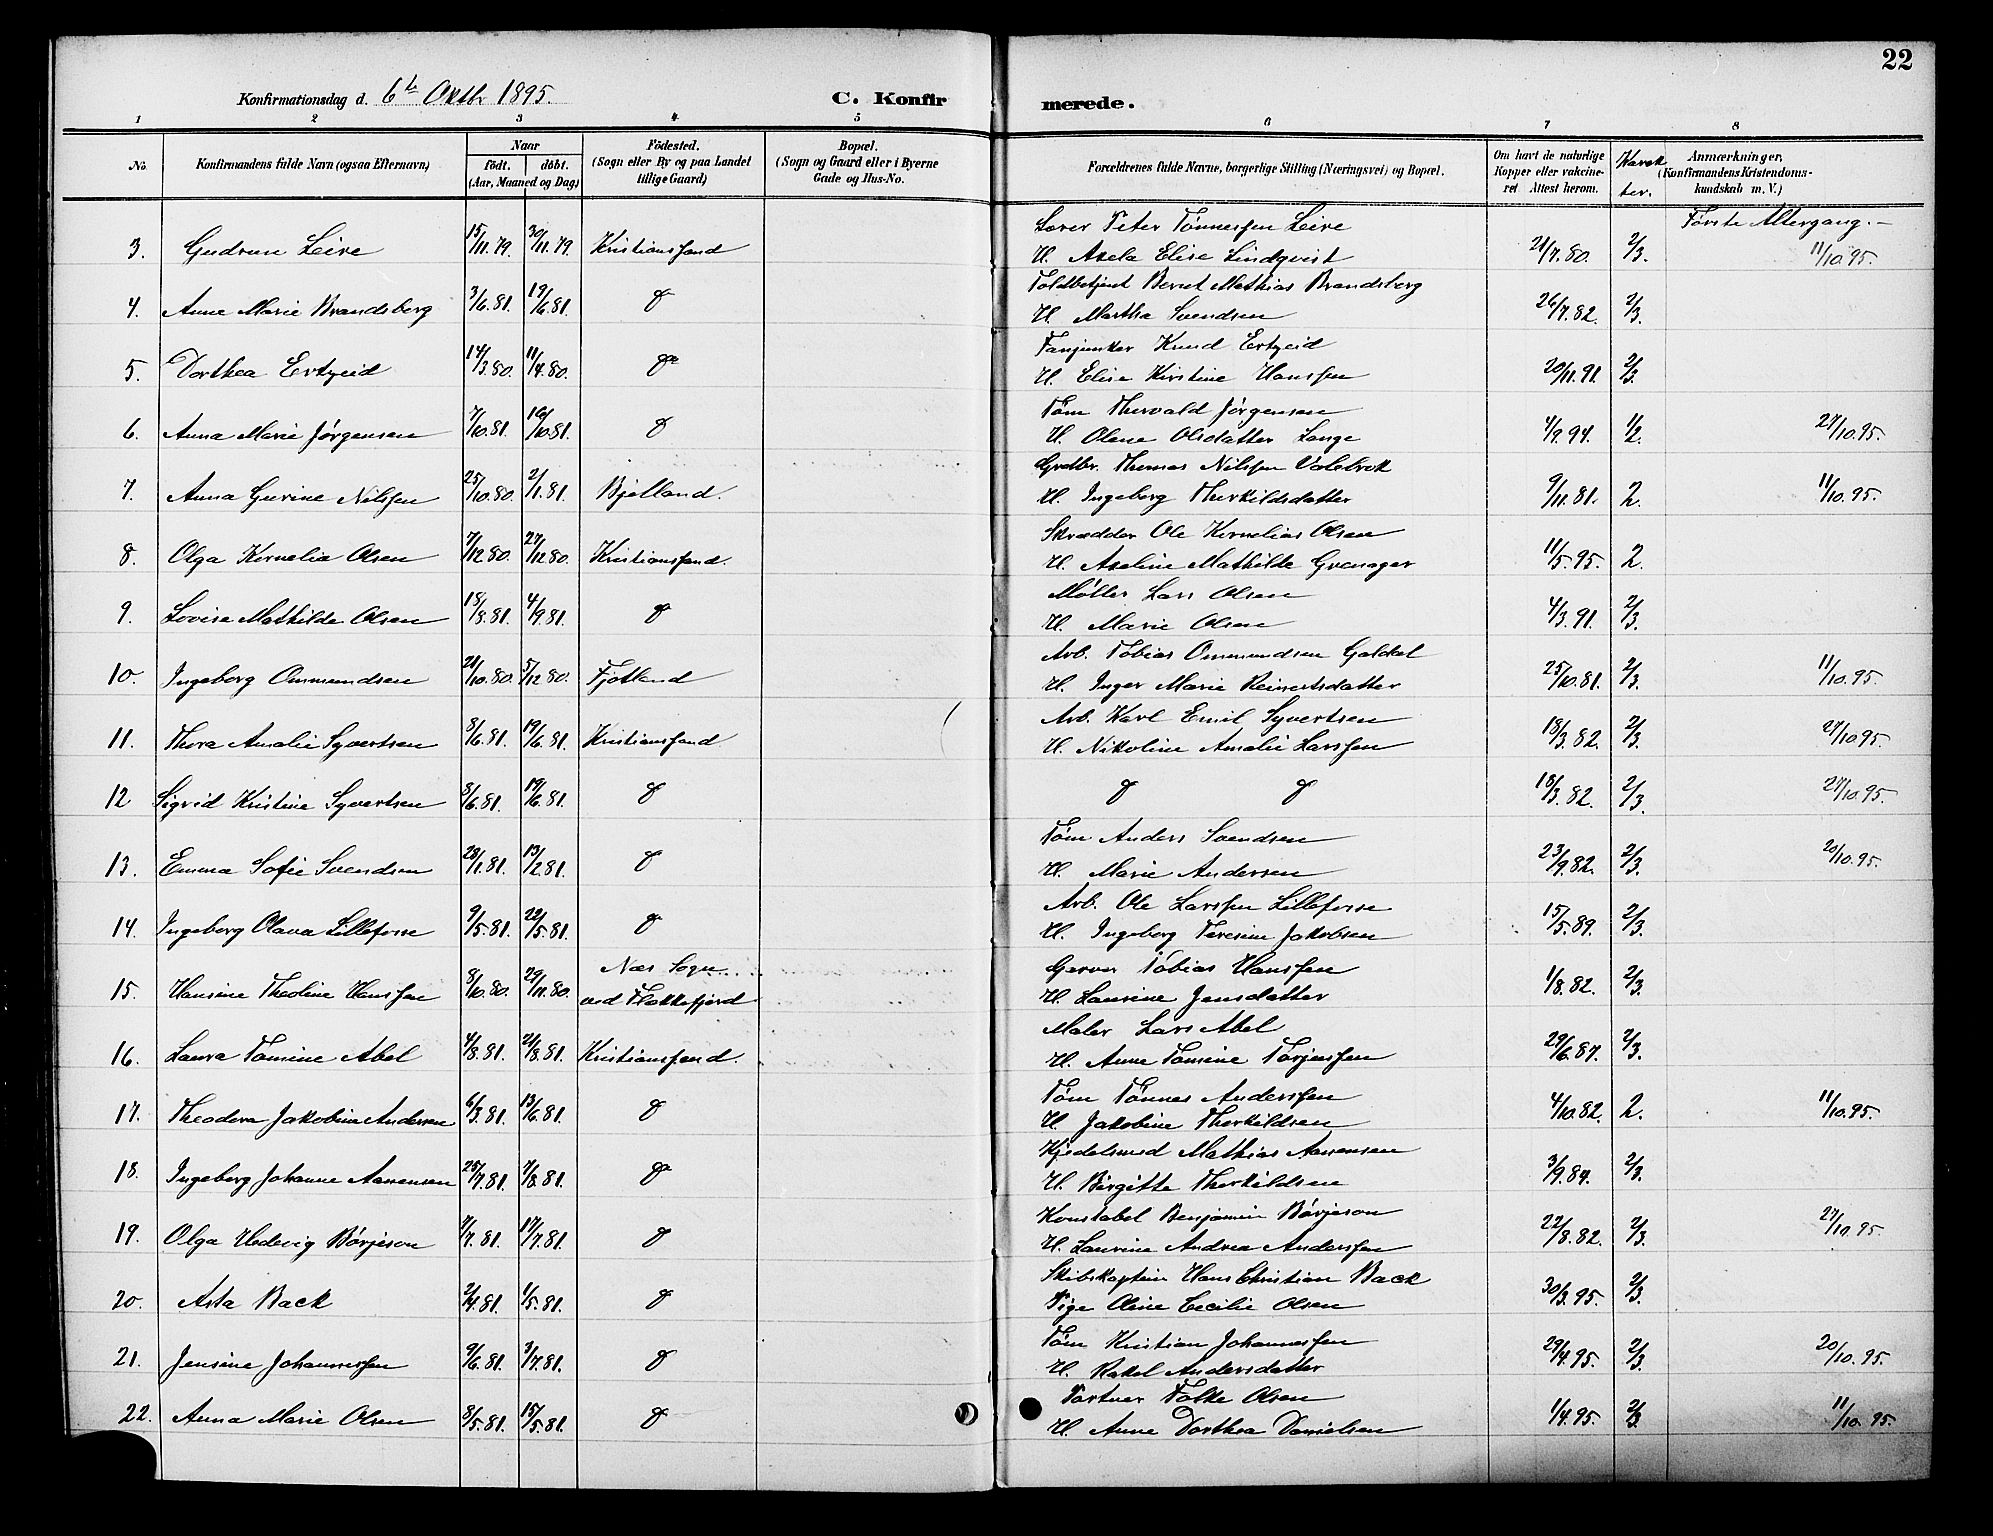 22
Konfirmationsdag d. 6te Oktbr 1895.
C. Konfirmerede.
1 2 3 4 5 6 7 8
No. Konfirmandens fulde Navn (ogsaa Efternavn) Naar født. døbt. (Aar, Maaned og Dag) Fødested. (Sogn eller By og paa Landet tillige Gaard) Bopæl. (Sogn og Gaard eller i Byerne Gade og Hus-No. Forældrenes fulde Navne, borgerlige Stilling (Næringsvei) og Bopæl. Om havt de naturlige Kopper eller vakcineret Attest herom. Karakter. Anmærkninger, (Konfirmandens Kristendomskundskab m. V.)
Første Altergang.
Peter Tønnessen Leire
3. Gudrun Leire 15/11.79. 30/11.79. Kristianssand H. Axela Elise Lindqvist 21/7.80. 2/3. 11/10.95.
Toldbetjent Bernt Mathias Brandsberg
4. Anne Marie Brandsberg 3/6.81. 19/6.81. do H. Martha Svendsen 26/7.82. 2/3.
Fanjunker Knud Ertzeid
5. Dorthea Ertzeid 14/3.80. 11/4.80. do H. Elise Kirstine Hanssen 20/11.91. 2/3.
Tøm Thorvald Jørgensen
6. Anna Marie Jørgensen 7/10.81. 16/10.81. do H. Olene Olsdatter Lange 4/9.94. 1/2. 27/10.95.
Grdbr. Thomas Nilssen Valebrok
7. Anna Gurine Nilssen 25/10.80. 2/1.81. Bjelland. H. Ingeborg Therkildsdatter 9/11.81. 2. 11/10.95.
Skrædder Ole Kornelius Olsen
8. Olga Kornelia Olsen 7/12.80. 27/12.80. Kristianssand. H. Axeline Mathilde Grønager 11/5.95. 2.
Møller Lars Olsen
9. Lovise Mathilde Olsen 18/8.81. 4/9.81. do H. Marie Olsen 4/3.91. 2/3.
Arb. Tobias Ommundsen
10. Ingeborg Ommundsen 21/10.80. 5/12.80. Fjotland H. Inger Marie Reinertsdatter 25/10.81. 2/3. 11/10.95.
Arb. Karl Emil Syvertsen
11. Thora Amalie Syvertsen 8/6.81. 19/6.81. Kristianssand. H. Nikoline Amalie Larssen 18/3.82. 2/3. 27/10.95.
12 Sigrid Kristine Syvertsen 8/6.81. 19/6.81. do do do 18/3.82. 2/3. 27/10.95.
Tøm Anders Svendsen
13. Emma Sofie Svendsen 28/1.81. 13/2.81. do H. Marie Andersen 23/9.82. 2/3. 20/10.95.
Arb. Ole Larssen Lillefosse
14. Ingeborg Olava Lillefosse 9/5.81. 22/5.81. do H. Ingeborg Teresine Jakobsen 15/5.89. 2/3.
Nes Sogn Garver Tobias Hanssen
15. Hansine Theoline Hanssen 8/10.80. 29/11.80. ved Flekkefjord H. Laurine Jensdatter 1/8.82. 2/3.
Maler Lars Abel
16. Laura Tomine Abel 4/8.81. 21/8.81. Kristianssand. H. Anne Tomine Torjussen 29/6.87. 2/3.
Tøm Tønnes Anderssen
17. Theodora Jakobine Andersen 6/3.81. 13/6.81. do H. Jakobine Therkildsen 4/10.82. 2. 11/10.95.
Kjedelsmed Mathias Aanensen
18. Ingeborg Johanne Aanensen 25/7.81. 7/8.81. do H. Birgitte Therkildsen 3/9.84. 2/3.
Konstabel Benjamin Børjeson
19. Olga Hedevig Børjeson 7/7.81. 17/7.81. do H. Laurine Andrea Anderssen 22/8.82. 2/3. 27/10.95.
Skibskaptein Hans Christian Back
20. Asta Back 2/4.81. 1/5.81. do Pige Oline Cecilie Olsen 30/3.95. 2/3.
Tøm Kristian Johannessen
21. Jensine Johannessen 9/6.81. 3/7.81. do H. Rakel Andersdatter 29/4.95. 2/3. 20/10.95.
Portner Folke Olsen
22. Anna Marie Olsen 8/5.81. 15/5.81. do H. Anne Dorthea Danielsen 1/4.95. 2/3. 11/10.95.